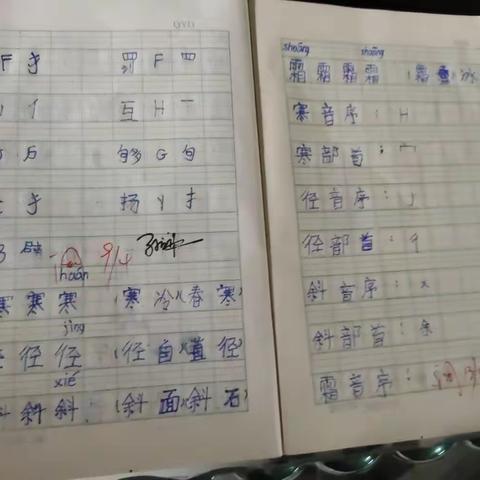 F 扌 罚 F 罒
亻 互 H 一
方 够 G 句
扌 扬 Y 扌
9/4
hán
寒 寒 寒 (寒冷)(春寒)
jìng
径 径 径 (径自)(直径)
xié
斜 斜 斜 (斜面)(斜石)
shuāng shuāng
霜 霜 霜 霜 (霜 冰
寒音序:H
寒部首:宀
径音序:J
径部首:彳
斜音序:X
斜部首:余
霜音序: